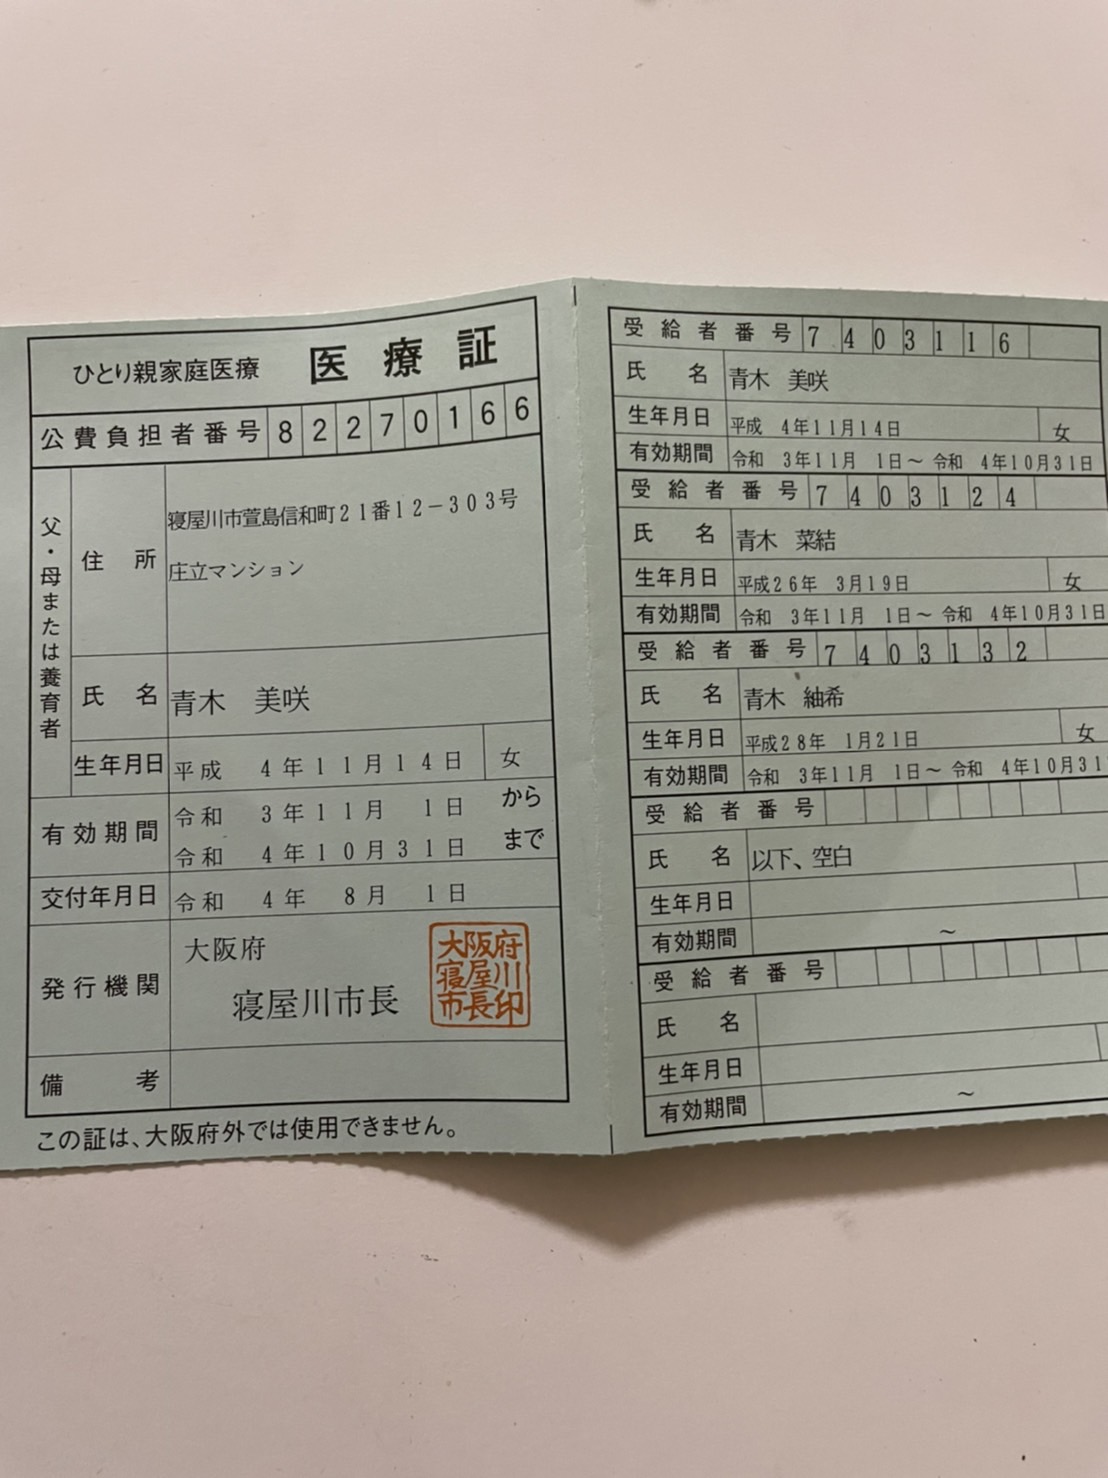 ひとり親家庭医療 医療証
公費負担者番号 82270166
父・母または養育者
住所 寝屋川市萱島信和町21番12-303号
庄立マンション
氏名 青木 美咲
生年月日 平成 4年11月14日 女
有効期間 令和 3年11月 1日 から
令和 4年10月31日 まで
交付年月日 令和 4年 8月 1日
発行機関 大阪府
寝屋川市長
大阪府
寝屋川
市長印
備考
この証は、大阪府外では使用できません。
受給者番号 7403116
氏名 青木 美咲
生年月日 平成 4年11月14日 女
有効期間 令和 3年11月 1日~令和 4年10月31日
受給者番号 7403124
氏名 青木 菜結
生年月日 平成26年 3月19日 女
有効期間 令和 3年11月 1日~令和 4年10月31日
受給者番号 7403132
氏名 青木 紬希
生年月日 平成28年 1月21日 女
有効期間 令和 3年11月 1日~令和 4年10月31
受給者番号
氏名 以下、空白
生年月日
有効期間 ~
受給者番号
氏名
生年月日
有効期間 ~